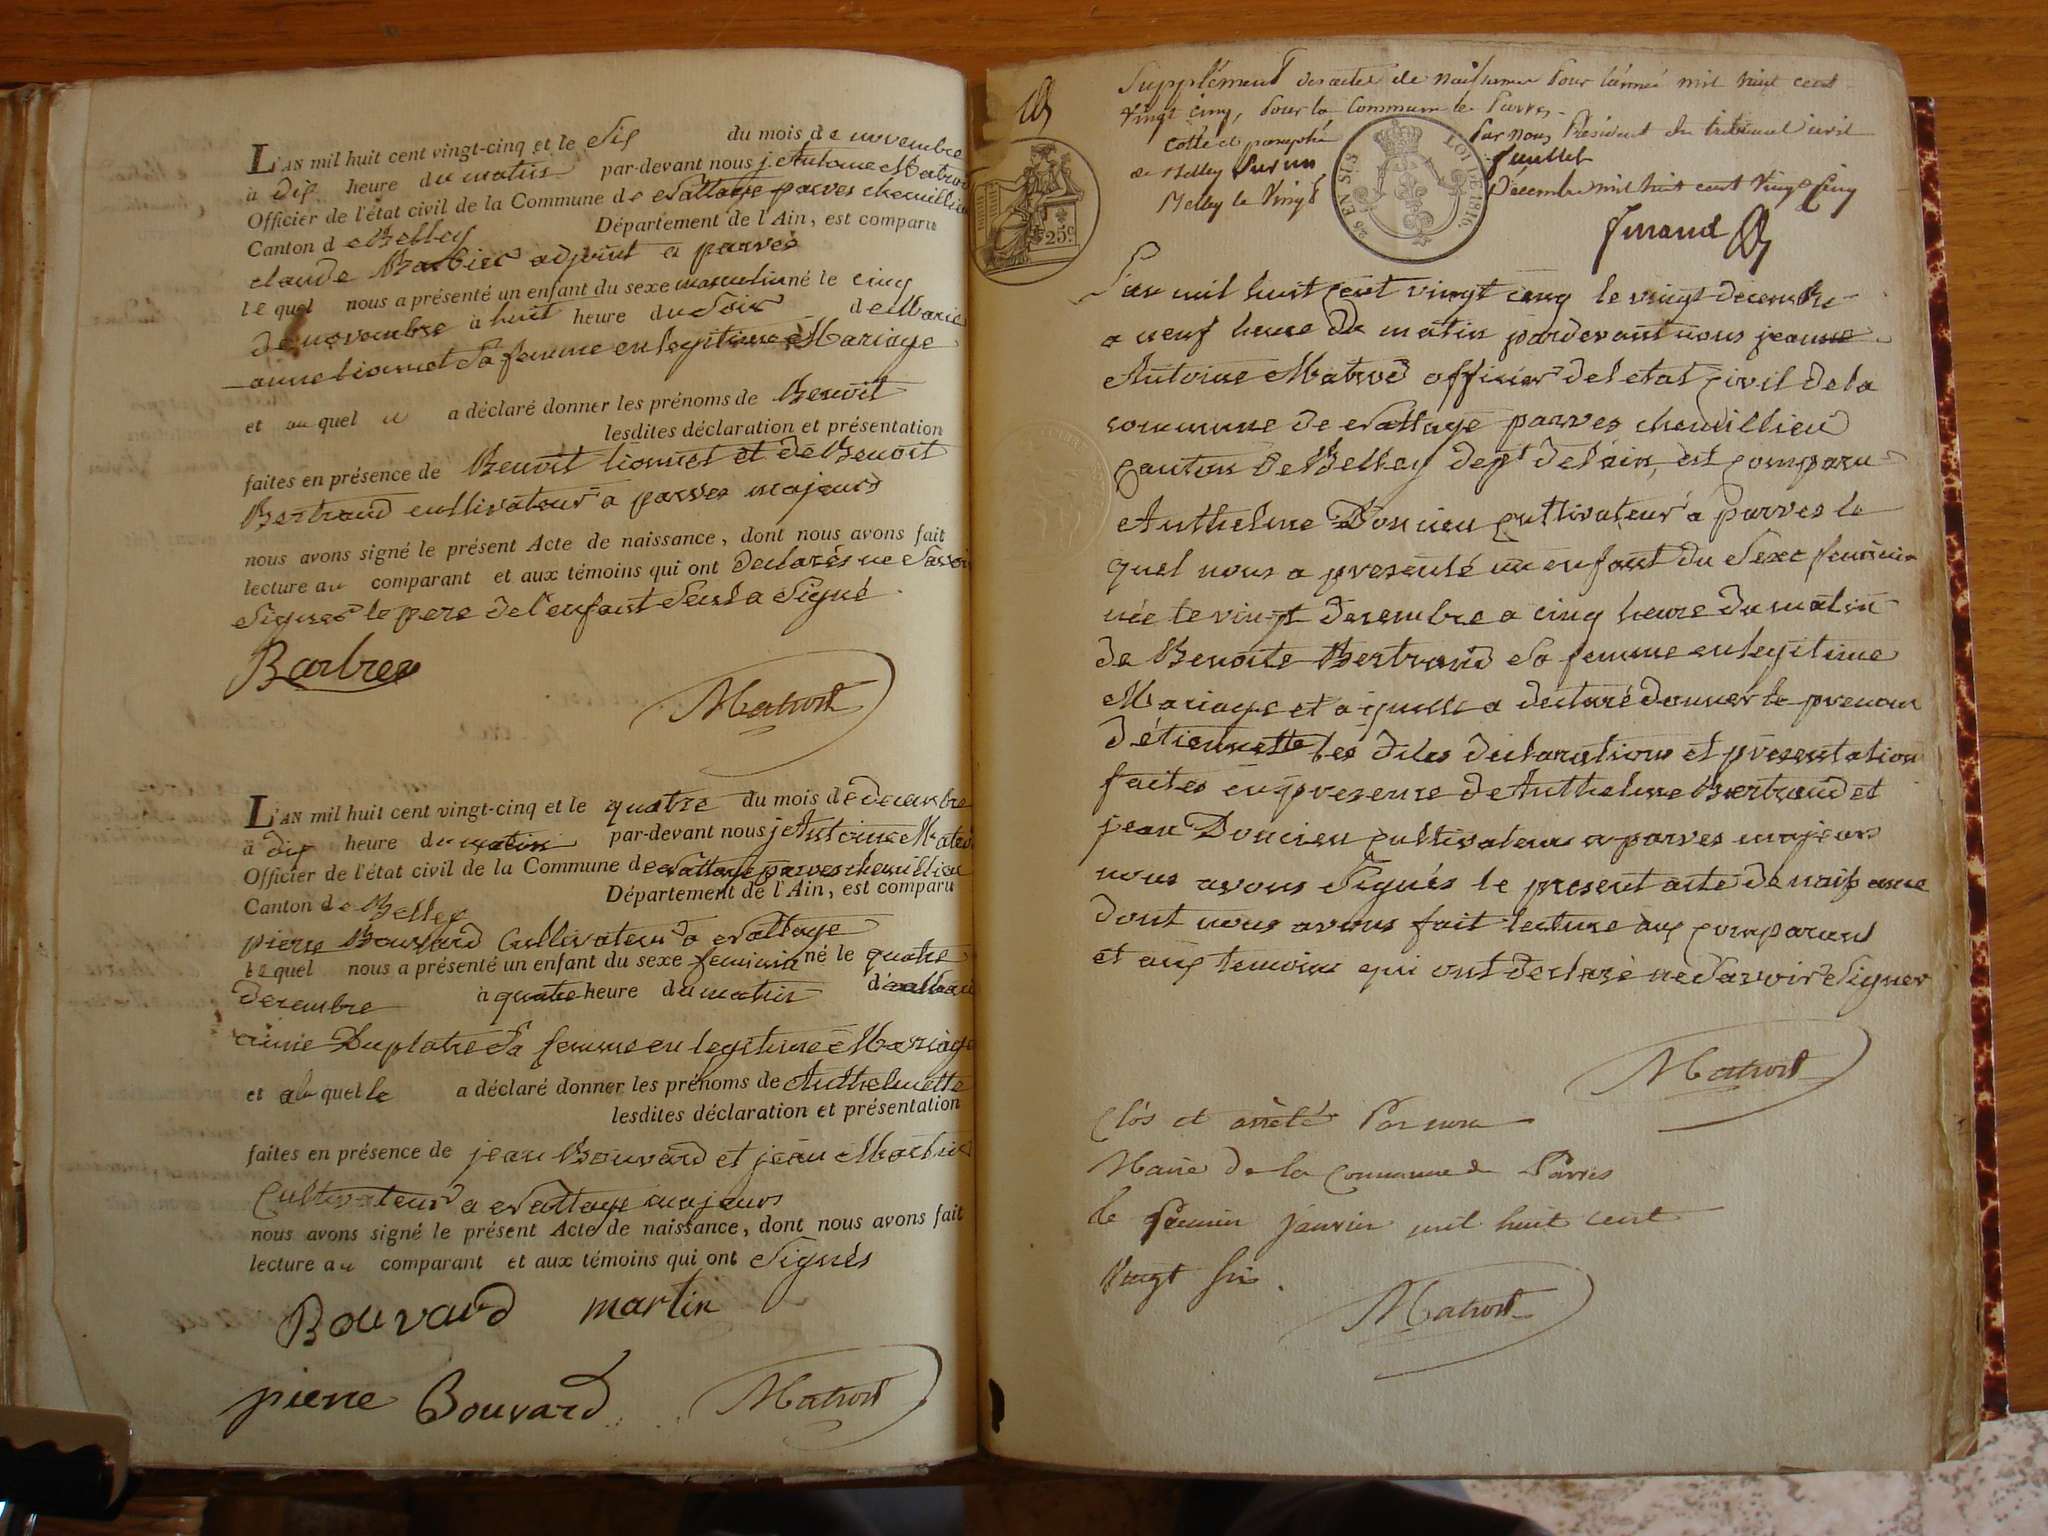 L'AN mil huit cent vingt-cinq et le Six du mois de novembre
à dix heure du matin par-devant nous j Antoine Matrod
Officier de l'état civil de la Commune de nattage parves chemillieu
Canton de Belley Département de l'Ain, est comparu
claude Barbier adjoint a parves
le quel nous a présenté un enfant du sexe masculin né le cinq
de novembre à huit heure du Soir de Marie
anne Sa femme en legitime Mariage
et au quel il a déclaré donner les prénoms de Benoit
lesdites déclaration et présentation
faites en présence de Benoit et de Benoit
Bertrand cultivateur a parves majeurs
nous avons signé le présent Acte de naissance, dont nous avons fait
lecture au comparant et aux témoins qui ont declarés ne Savoir
Signer le pere de l'enfant Seul a Signé
Barbier
Matrod
L'AN mil huit cent vingt-cinq et le quatre du mois de decembre
à dix heure du matin par-devant nous j Antoine Matrod
Officier de l'état civil de la Commune de nattage parves chemillieu
Canton de Belley Département de l'Ain, est comparu
pierre Bouvard Cultivateur a nattage
le quel nous a présenté un enfant du sexe feminin né le quatre
decembre à quatre heure du matin
Duplatre Sa femme en legitime Mariage
et a la quelle a déclaré donner les prénoms de Anthelmette
lesdites déclaration et présentation
faites en présence de jean Bouvard et jean Martin
Cultivateur a nattage majeurs
nous avons signé le présent Acte de naissance, dont nous avons fait
lecture au comparant et aux témoins qui ont Signés
Bouvard martin
pierre Bouvard Matrod
Supplément des actes de naissance pour l'année mil huit cent
vingt cinq, pour la Commune de Parves.
Cotté et paraphé Par nous Président du tribunal civil
de Belley feuillet
Belley le Vingt Décembre mil huit cent Vingt Cinq
25 EN SUS LOI DE 1816
25c
L'an mil huit cent vingt cinq le vingt decembre
a neuf heure du matin pardevant nous jeanne
Antoine Matrod officier de l etat civil de la
commune de nattage parves chemillieu
canton de Belley dept. de l'ain, est comparu
Anthelme Doncieu cultivateur a parves le
quel nous a presenté un enfant du Sexe feminin
née le vingt decembre a cinq heure du matin
de Benoite Bertrand Sa femme en legitime
Mariage et a quelle a declaré donner le prenom
d'étiennette les dites declaration et presentation
faites en presence de Anthelme Bertrand et
jean Doncieu cultivateur a parves majeurs
nous avons Signés le present acte de naissance
dont nous avons fait lecture aux comparant
et aux temoins qui ont declaré ne Savoir Signer
Matrod
Clos et arrêté Par nous
Maire de la Commune de Parves
le premier janvier mil huit cent
vingt six.
Matrod